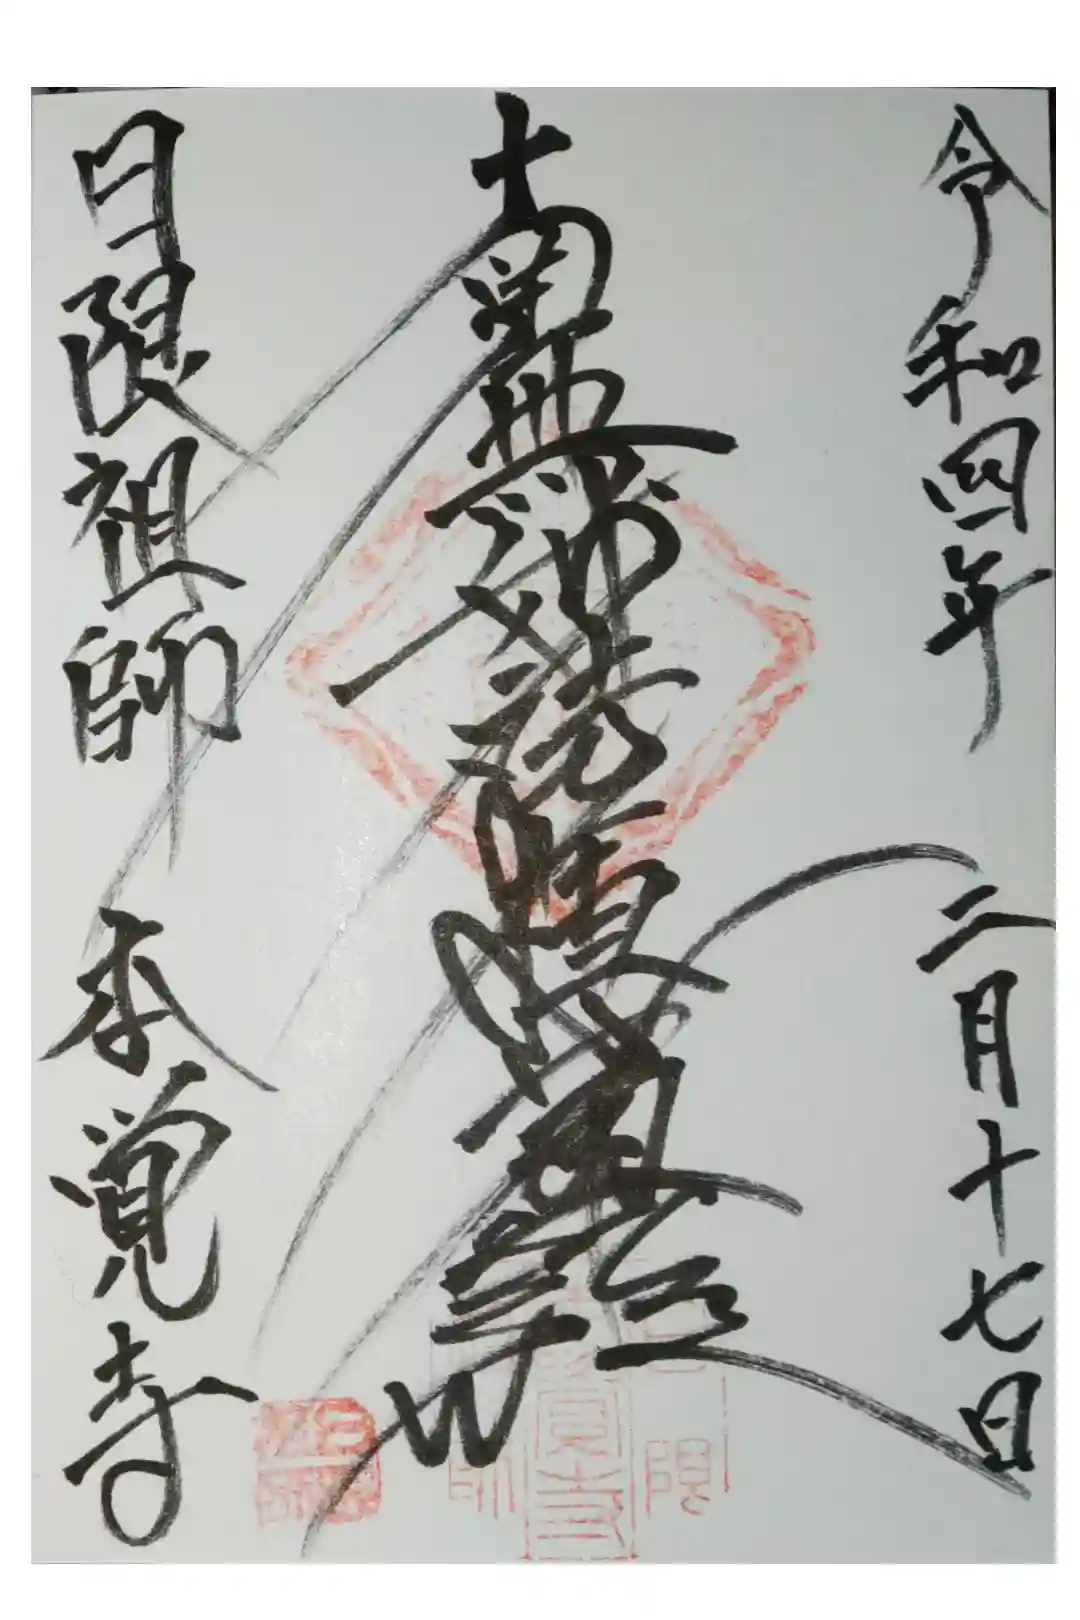 令和四年 二月十七日
南無妙法蓮華経
日限祖師 本覚寺